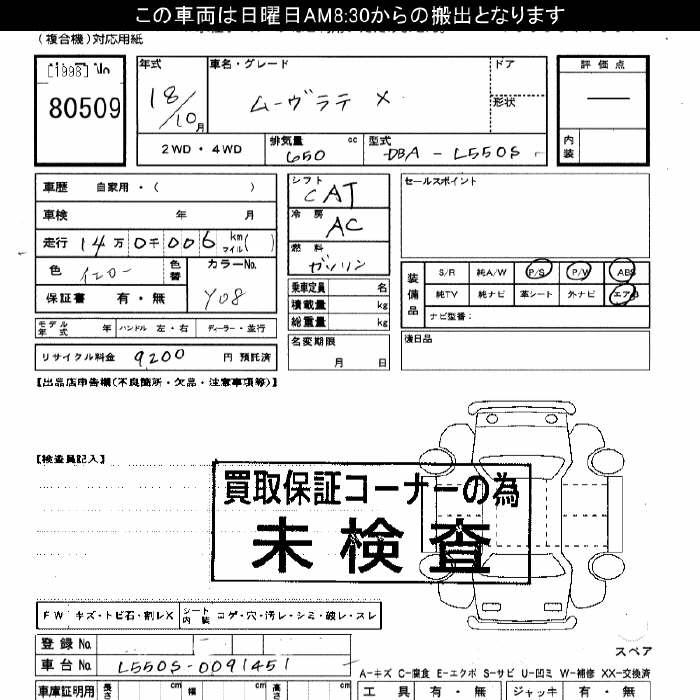 この車両は日曜日AM8:30からの搬出となります
(複合機)対応用紙
80509
年式 18/10月
車名・グレード ムーヴラテ X
ドア
形状
評価点
内装
2WD・4WD
排気量 650 cc
型式 DBA-L550S
車歴 自家用・( )
車検 年 月
走行 14万0千006 km マイル( )
色 イエロー 色替
カラーNo. Y08
保証書 有・無
シフト CAT
冷房 AC
燃料 ガソリン
乗車定員 名
積載量 kg
総重量 kg
名変期限 月 日
セールスポイント
装備品
S/R 純A/W P/S P/W ABS
純TV 純ナビ 革シート 外ナビ エアB
ナビ型番:
後日品
モデル年式 年 ハンドル 左・右 ディーラー・並行
リサイクル料金 9200 円 預託済
【出品店申告欄(不良箇所・欠品・注意事項等)】
【検査員記入】
買取保証コーナーの為
未検査
FW キズ・トビ石・割レX シート内装 コゲ・穴・汚レ・シミ・破レ・スレ
登録No.
車台No. L550S-0091451
スペア
A-キズ C-腐食 E-エクボ S-サビ U-凹ミ W-補修 XX-交換済
車庫証明用 長さ cm 幅 cm 高さ cm
工具 有・無 ジャッキ 有・無